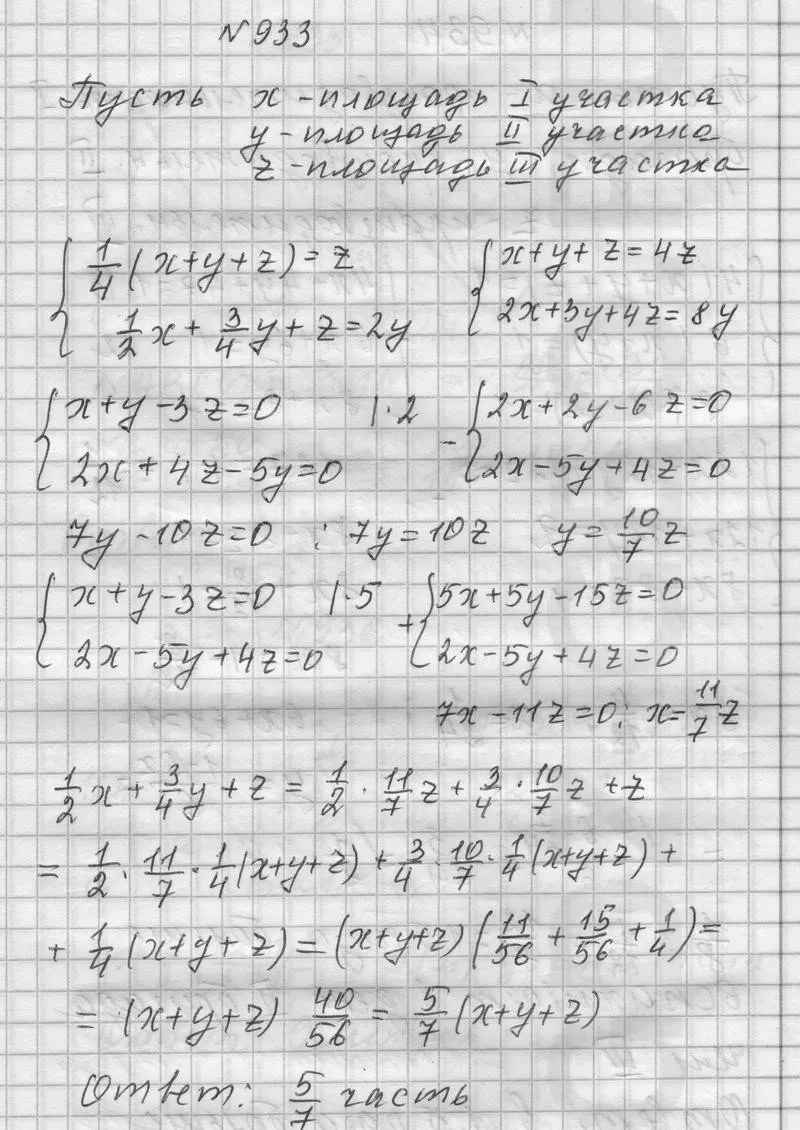 N933
Пусть x - площадь I участка
y - площадь II участка
z - площадь III участка
{ 1/4 (x+y+z) = z { x+y+z = 4z
1/2 x + 3/4 y + z = 2y 2x+3y+4z = 8y
{ x+y-3z=0 |·2 - { 2x+2y-6z=0
2x+4z-5y=0 2x-5y+4z=0
7y-10z=0 ; 7y=10z y = 10/7 z
{ x+y-3z=0 |·5 + { 5x+5y-15z=0
2x-5y+4z=0 2x-5y+4z=0
7x-11z=0; x = 11/7 z
1/2 x + 3/4 y + z = 1/2 · 11/7 z + 3/4 · 10/7 z + z
= 1/2 · 11/7 · 1/4 (x+y+z) + 3/4 · 10/7 · 1/4 (x+y+z) +
+ 1/4 (x+y+z) = (x+y+z) (11/56 + 15/56 + 1/4) =
= (x+y+z) 40/56 = 5/7 (x+y+z)
Ответ: 5/7 часть